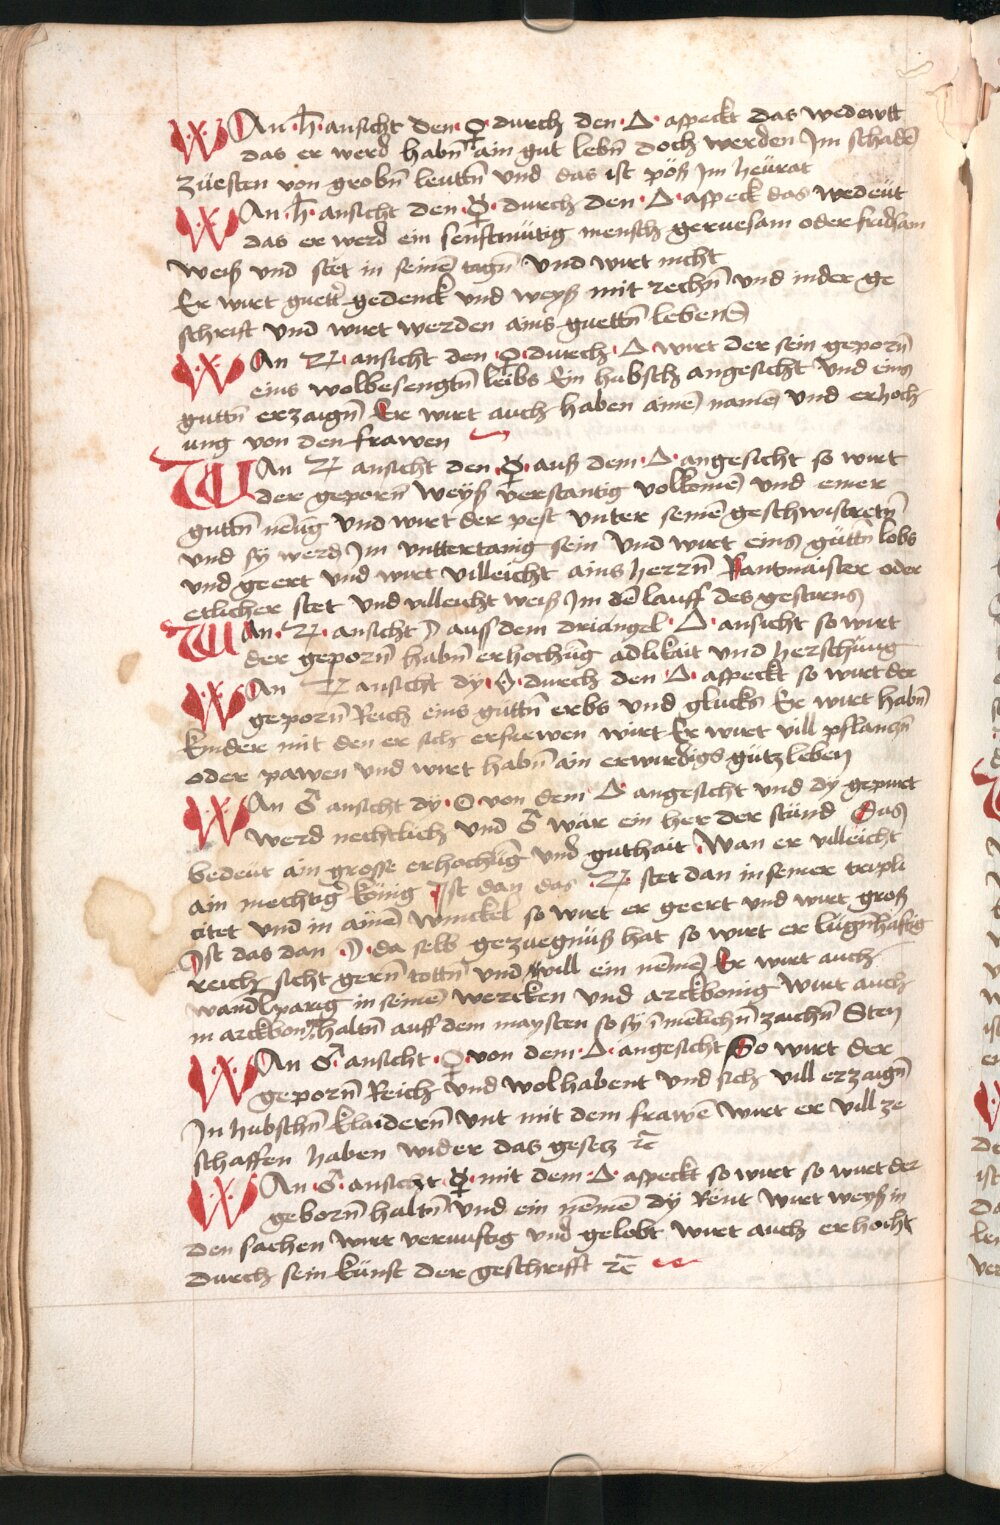 WAn · ♄ · ansicht den · ♀ · durch den · △ · aspeckt das wedewtt
das er werd habñ ain gut lebñ doch werden Im schadẽ
züesten von grobñ leuttñ vnd das ist pöß Im heürat
WAn · ♄ · ansicht den · ☿ · durch den · △ · aspeck das wedeüt
das er werd ein senftmütig mensch geruesam oder fridsam
Weiß vnd stet in seinẽ tagñ vnd wirt nicht
Er wirt guett gedenck vnd weyß mit rechñ vnd in der ge
schrift vnd wirt werden ains guettñ lebens
WAn ♃ · ansicht den · ♀ · durch · △ · wirt der sein geporñ
eins wolbesengtñ leibs Ein hubsch angesicht vnd eins
guttñ erzaigñ Er wirt auch haben ainẽ namẽ vnd erhoch
ung von den frawen
WAn ♃ ansicht den · ☿ · auß dem · △ · angesicht so wirt
der geporñ weyß verstantig volkomẽ vnd einer
guttñ nẽũg vnd wirt der pest vnter seinẽ geschwistretñ
vnd sy werd Im vnttertanig sein vnd wirt eins güttñ lobs
vnd geert vnd wirt villeicht ains herrñ Hantmaister oder
etlicher stet vnd villeicht weiß Im dẽ lauff des gestirns
WAn · ♃ · ansicht ☽ auss dem driangel · △ · ansicht so wirt
der geporñ habñ erhochũg adlikait vnd herschüng
WAn ♃ ansicht dy · ☊ · durch den · △ · aspeckt so wirt der
geporñ Reich eins güttñ erbs vnd glucks Er wirt habñ
kinder mit den er sich erfrewen wirt Er wirt vill pflanczñ
oder pawen vnd wirt habñ ain erwirdigs gütz leben
WAn ♂ ansicht dy · ☉ · von dem · △ · angesicht vnd dy gepurt
werd nechtlich vnd ♂ wär ein her der stünd Das
bedeüt ain grosse erhochũg vnd guthait Wan er villeicht
ain mechtig könig Ist dan das · ♃ · stet dan in seiner tripli
citet vnd in ainẽ winckel so wirt er geert vnd wirt groß
Ist das dan · ☽ · da selb gezuegnüß hat so wirt er lügñhaftig
reich sicht gerñ tottñ vnd will ein nemẽ Er wirt auch
wandlparig in seinẽ wercken vnd arckbonig wirt auch
in arckbon haltñ auff dem maysten so sy ĩ menlichñ zaichñ Sten
WAn ♂ · ansicht · ♀ · von dem · △ · angesicht So wirt der
geporñ Reich vnd wolhabent vnd sich vill erzaigñ
In hubschñ klaiderñ vnt mit dem frawẽ wirt er vill ze
schaffen haben wider das gesecz ꝛc̃
WAn · ♂ · ansicht ☿ · mit dem · △ · aspeckt so wirt so wirt der
geborñ haltñ vnd ein nemẽ dy Rent wirt weyß in
den sachen wirt vernuftig vnd gelobt wirt auch erhocht
durch sein künst der geschrifft ꝛc̃